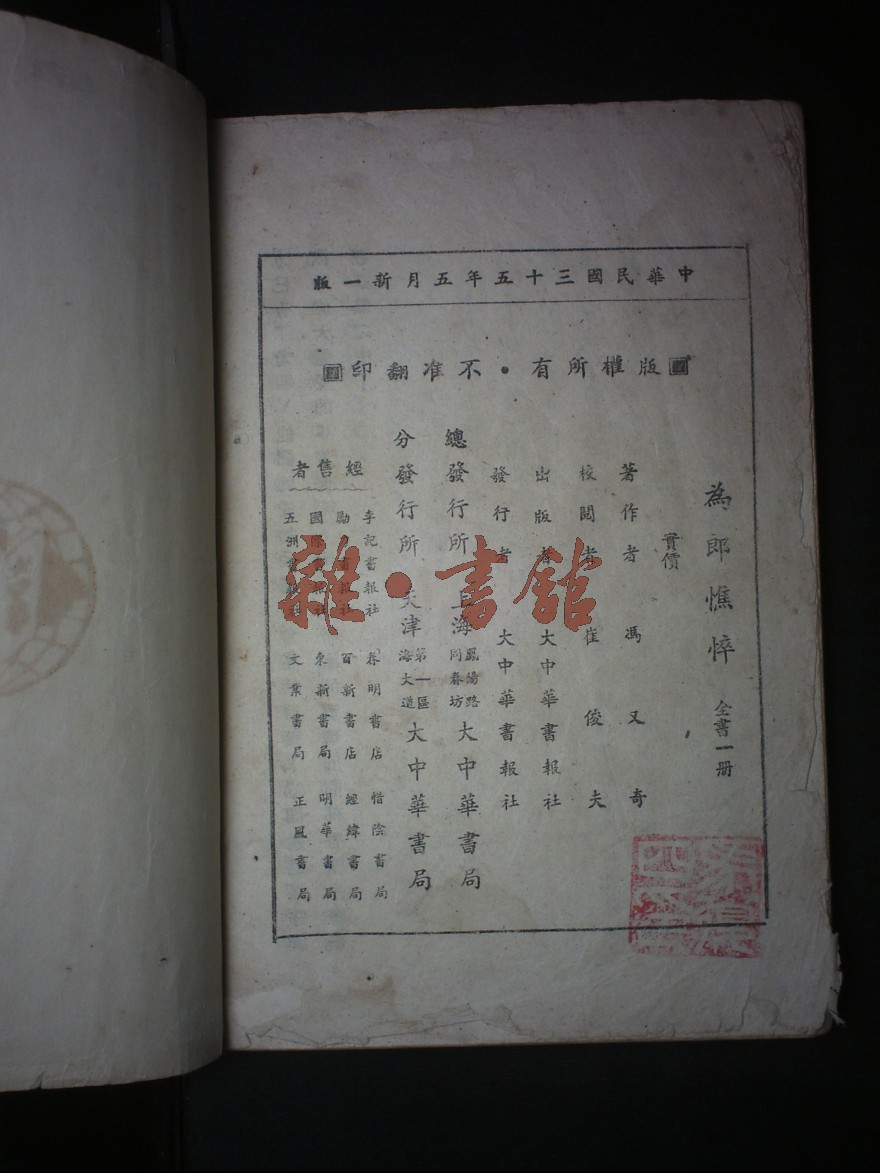 中華民國三十五年五月新一版
版權所有・不准翻印
為郎憔悴 全書一册
實價
著作者 馮又奇
校閱者 崔俊夫
出版者 大中華書報社
發行者 大中華書報社
總發行所 上海 鳳陽路同春坊 大中華書局
分發行所 天津 第一區海大道 大中華書局
經售者
李記書報社 春明書店 惜陰書局
勵 書報社 百新書店 經緯書局
國際書報社 東新書局 明華書局
五洲書報社 文業書局 正風書局
雜・書館